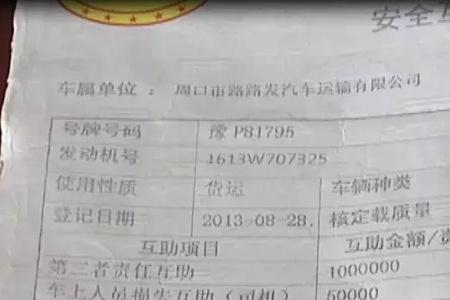 安全互
车属单位 ： 周口市路路发汽车运输有限公司
号牌号码 豫P81795
发动机号 1613W707325
使用性质 货运 车辆种类
登记日期 2013-08-28. 核定载质量
互助项目 互助金额/责
第三者责任互助 1000000
车上人员损失互助（司机） 50000